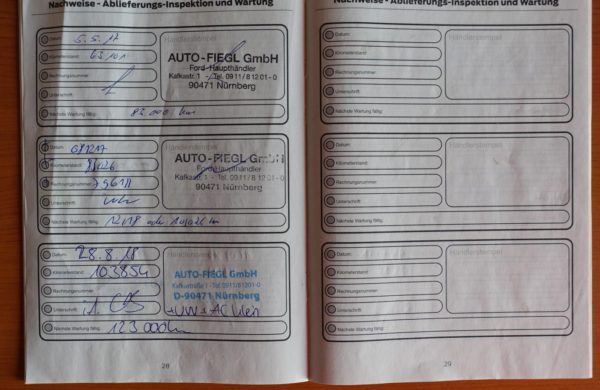 Nachweise - Ablieferungs-Inspektion und Wartung
Datum: 5.5.17
Kilometerstand: 63101
Rechnungsnummer:
Unterschrift:
Nächste Wartung fällig: km
Händlerstempel
AUTO-FIEGL GmbH
Ford-Haupthändler
Kafkastr. 1 - Tel. 0911/8 12 01-0
90471 Nürnberg
Datum:
Kilometerstand:
Rechnungsnummer:
Unterschrift:
Nächste Wartung fällig: 12/18 km
Händlerstempel
AUTO-FIEGL GmbH
Ford-Haupthändler
Kafkastr. 1 - Tel. 0911/8 12 01-0
90471 Nürnberg
Datum: 28.8.18
Kilometerstand: 103854
Rechnungsnummer:
Unterschrift:
Nächste Wartung fällig: 123000km
Händlerstempel
AUTO-FIEGL GmbH
Kafkastraße 1 - Tel.0911/81201-0
D-90471 Nürnberg
28
Nachweise - Ablieferungs-Inspektion und Wartung
Datum:
Kilometerstand:
Rechnungsnummer:
Unterschrift:
Nächste Wartung fällig:
Händlerstempel
Datum:
Kilometerstand:
Rechnungsnummer:
Unterschrift:
Nächste Wartung fällig:
Händlerstempel
Datum:
Kilometerstand:
Rechnungsnummer:
Unterschrift:
Nächste Wartung fällig:
Händlerstempel
29